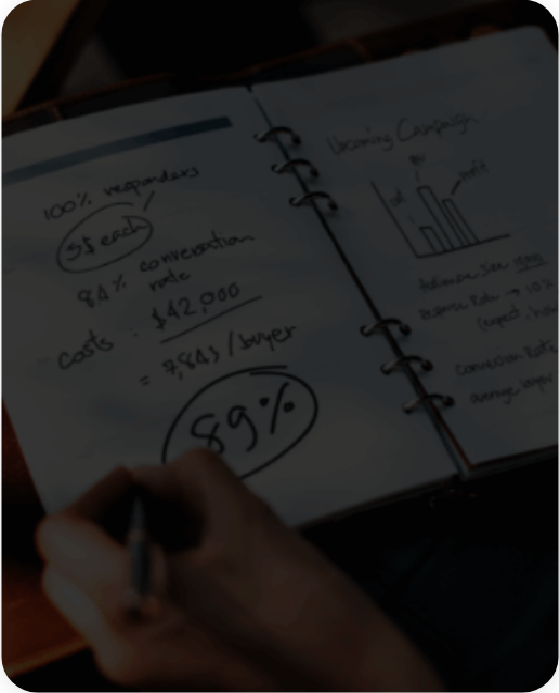 100% responders
5$ each
8.4% conversation
rate
costs - $42,000
= 7,845 / buyer
89%
Upcoming Campaign
cost
profit
Response Rate → 10%
(expect
Conversion Rate
average buyer